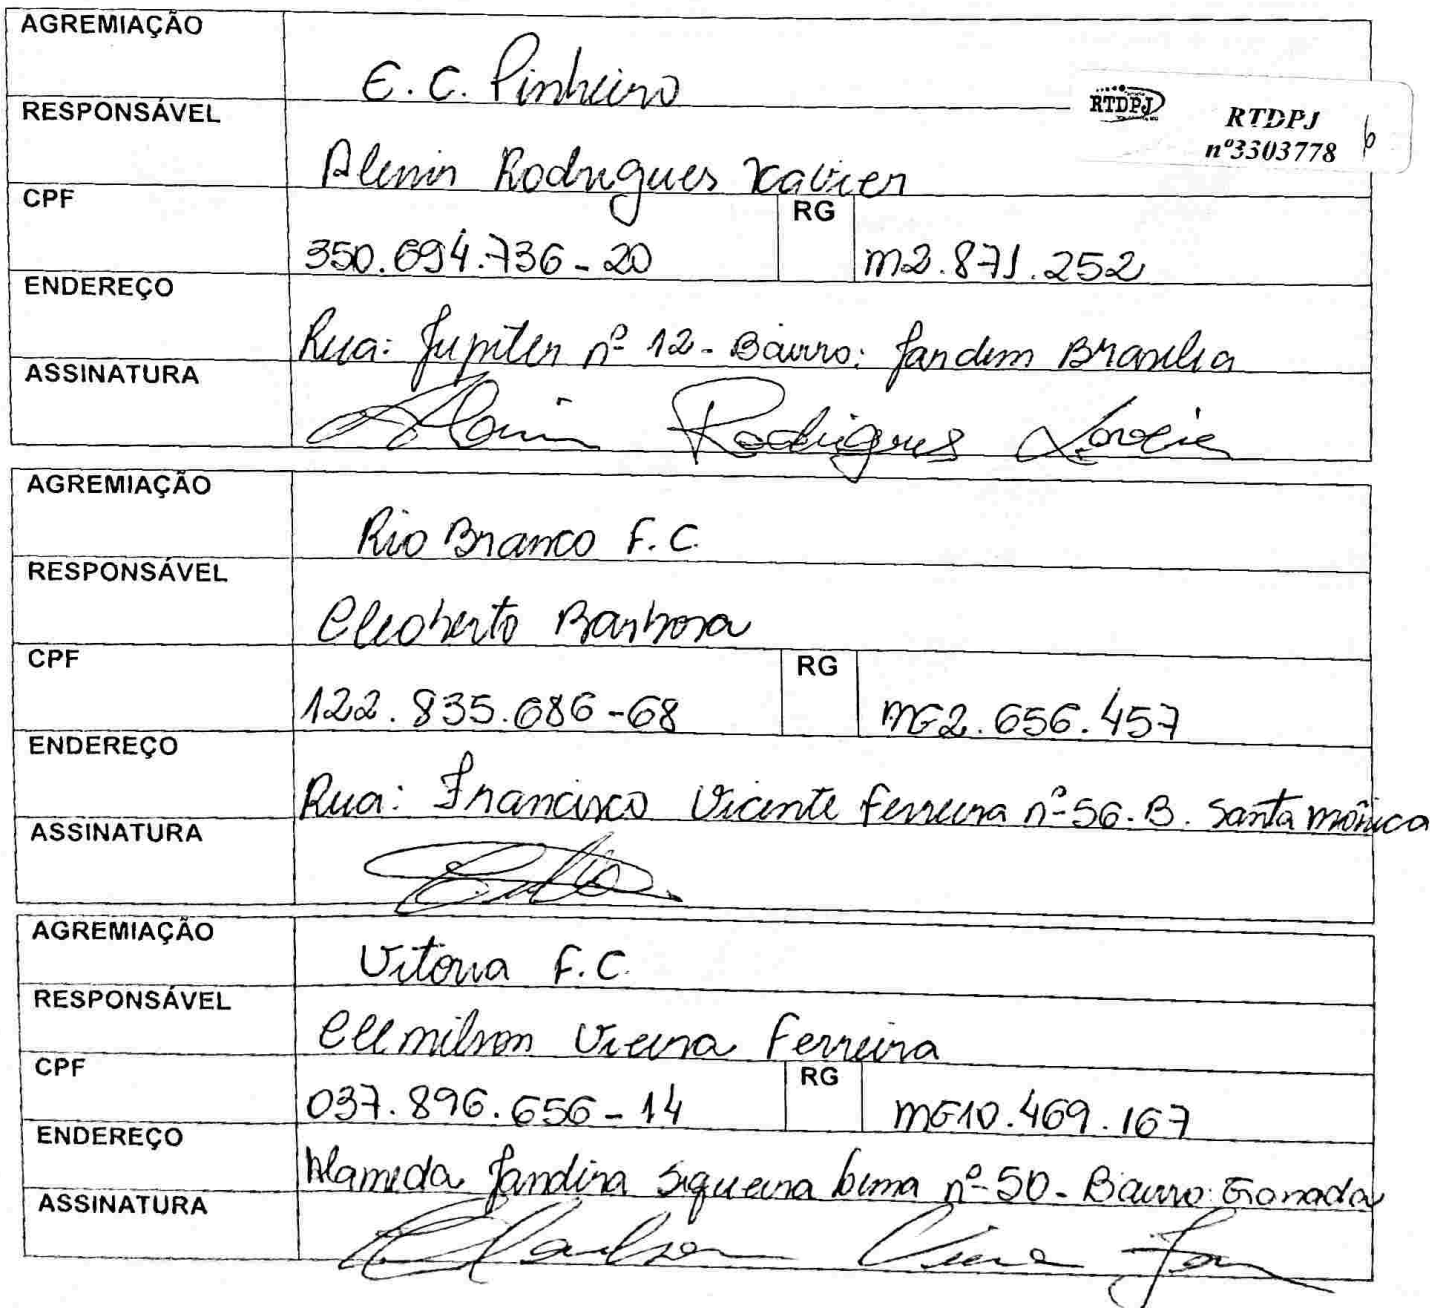 AGREMIAÇÃO E.C. Pinheiro
RTDPJ RTDPJ
nº3303778 6
RESPONSÁVEL Alemin Rodrigues Xavier
CPF 350.694.736-20 RG M2.871.252
ENDEREÇO Rua: Jupiter nº 12 - Bairro: Jardim Brasilia
ASSINATURA Rodrigues
AGREMIAÇÃO Rio Branco F.C.
RESPONSÁVEL Cleoberto Barbosa
CPF 122.835.686-68 RG MG2.656.457
ENDEREÇO Rua: Francisco Vicente Ferreira nº 56. B. Santa Mônica
ASSINATURA
AGREMIAÇÃO Vitoria F.C.
RESPONSÁVEL Clemilson Vieira Ferreira
CPF 037.896.656-14 RG MG10.469.167
ENDEREÇO Alameda Jandira Siqueira Lima nº 50 - Bairro: Granada
ASSINATURA